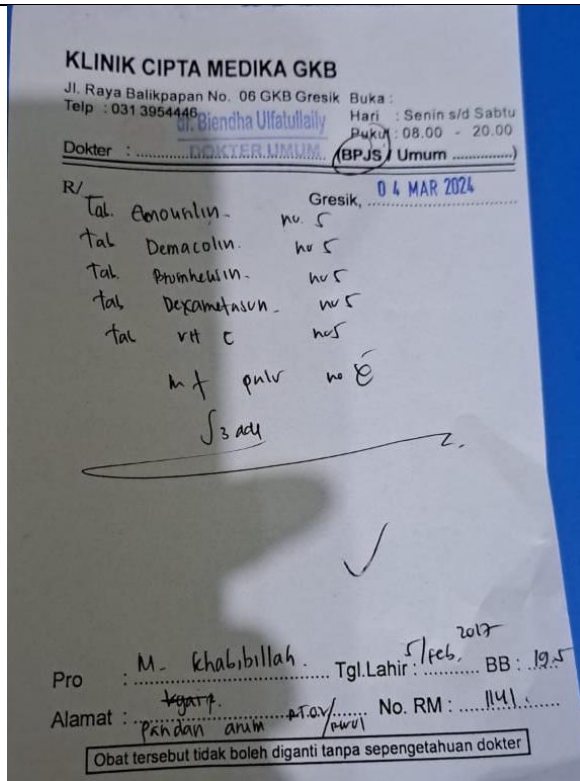 KLINIK CIPTA MEDIKA GKB
Jl. Raya Balikpapan No. 06 GKB Gresik Buka :
Telp : 031 3954446 Hari : Senin s/d Sabtu
dr. Biendha Ulfatullaily Pukul : 08.00 - 20.00
Dokter : DOKTER UMUM (BPJS / Umum ..............)
R/ Gresik, 04 MAR 2024
Tab. no. 5
Tab Demacolin. no 5
Tab. no 5
tab Dexametason no 5
tab vit C no 5
m f pulv no
∫ 3 dd 1
Pro : M. Khabibillah. Tgl.Lahir : 5/Feb. 2017 BB : 19.5
Alamat : Pandan arum No. RM : 1141.
Obat tersebut tidak boleh diganti tanpa sepengetahuan dokter